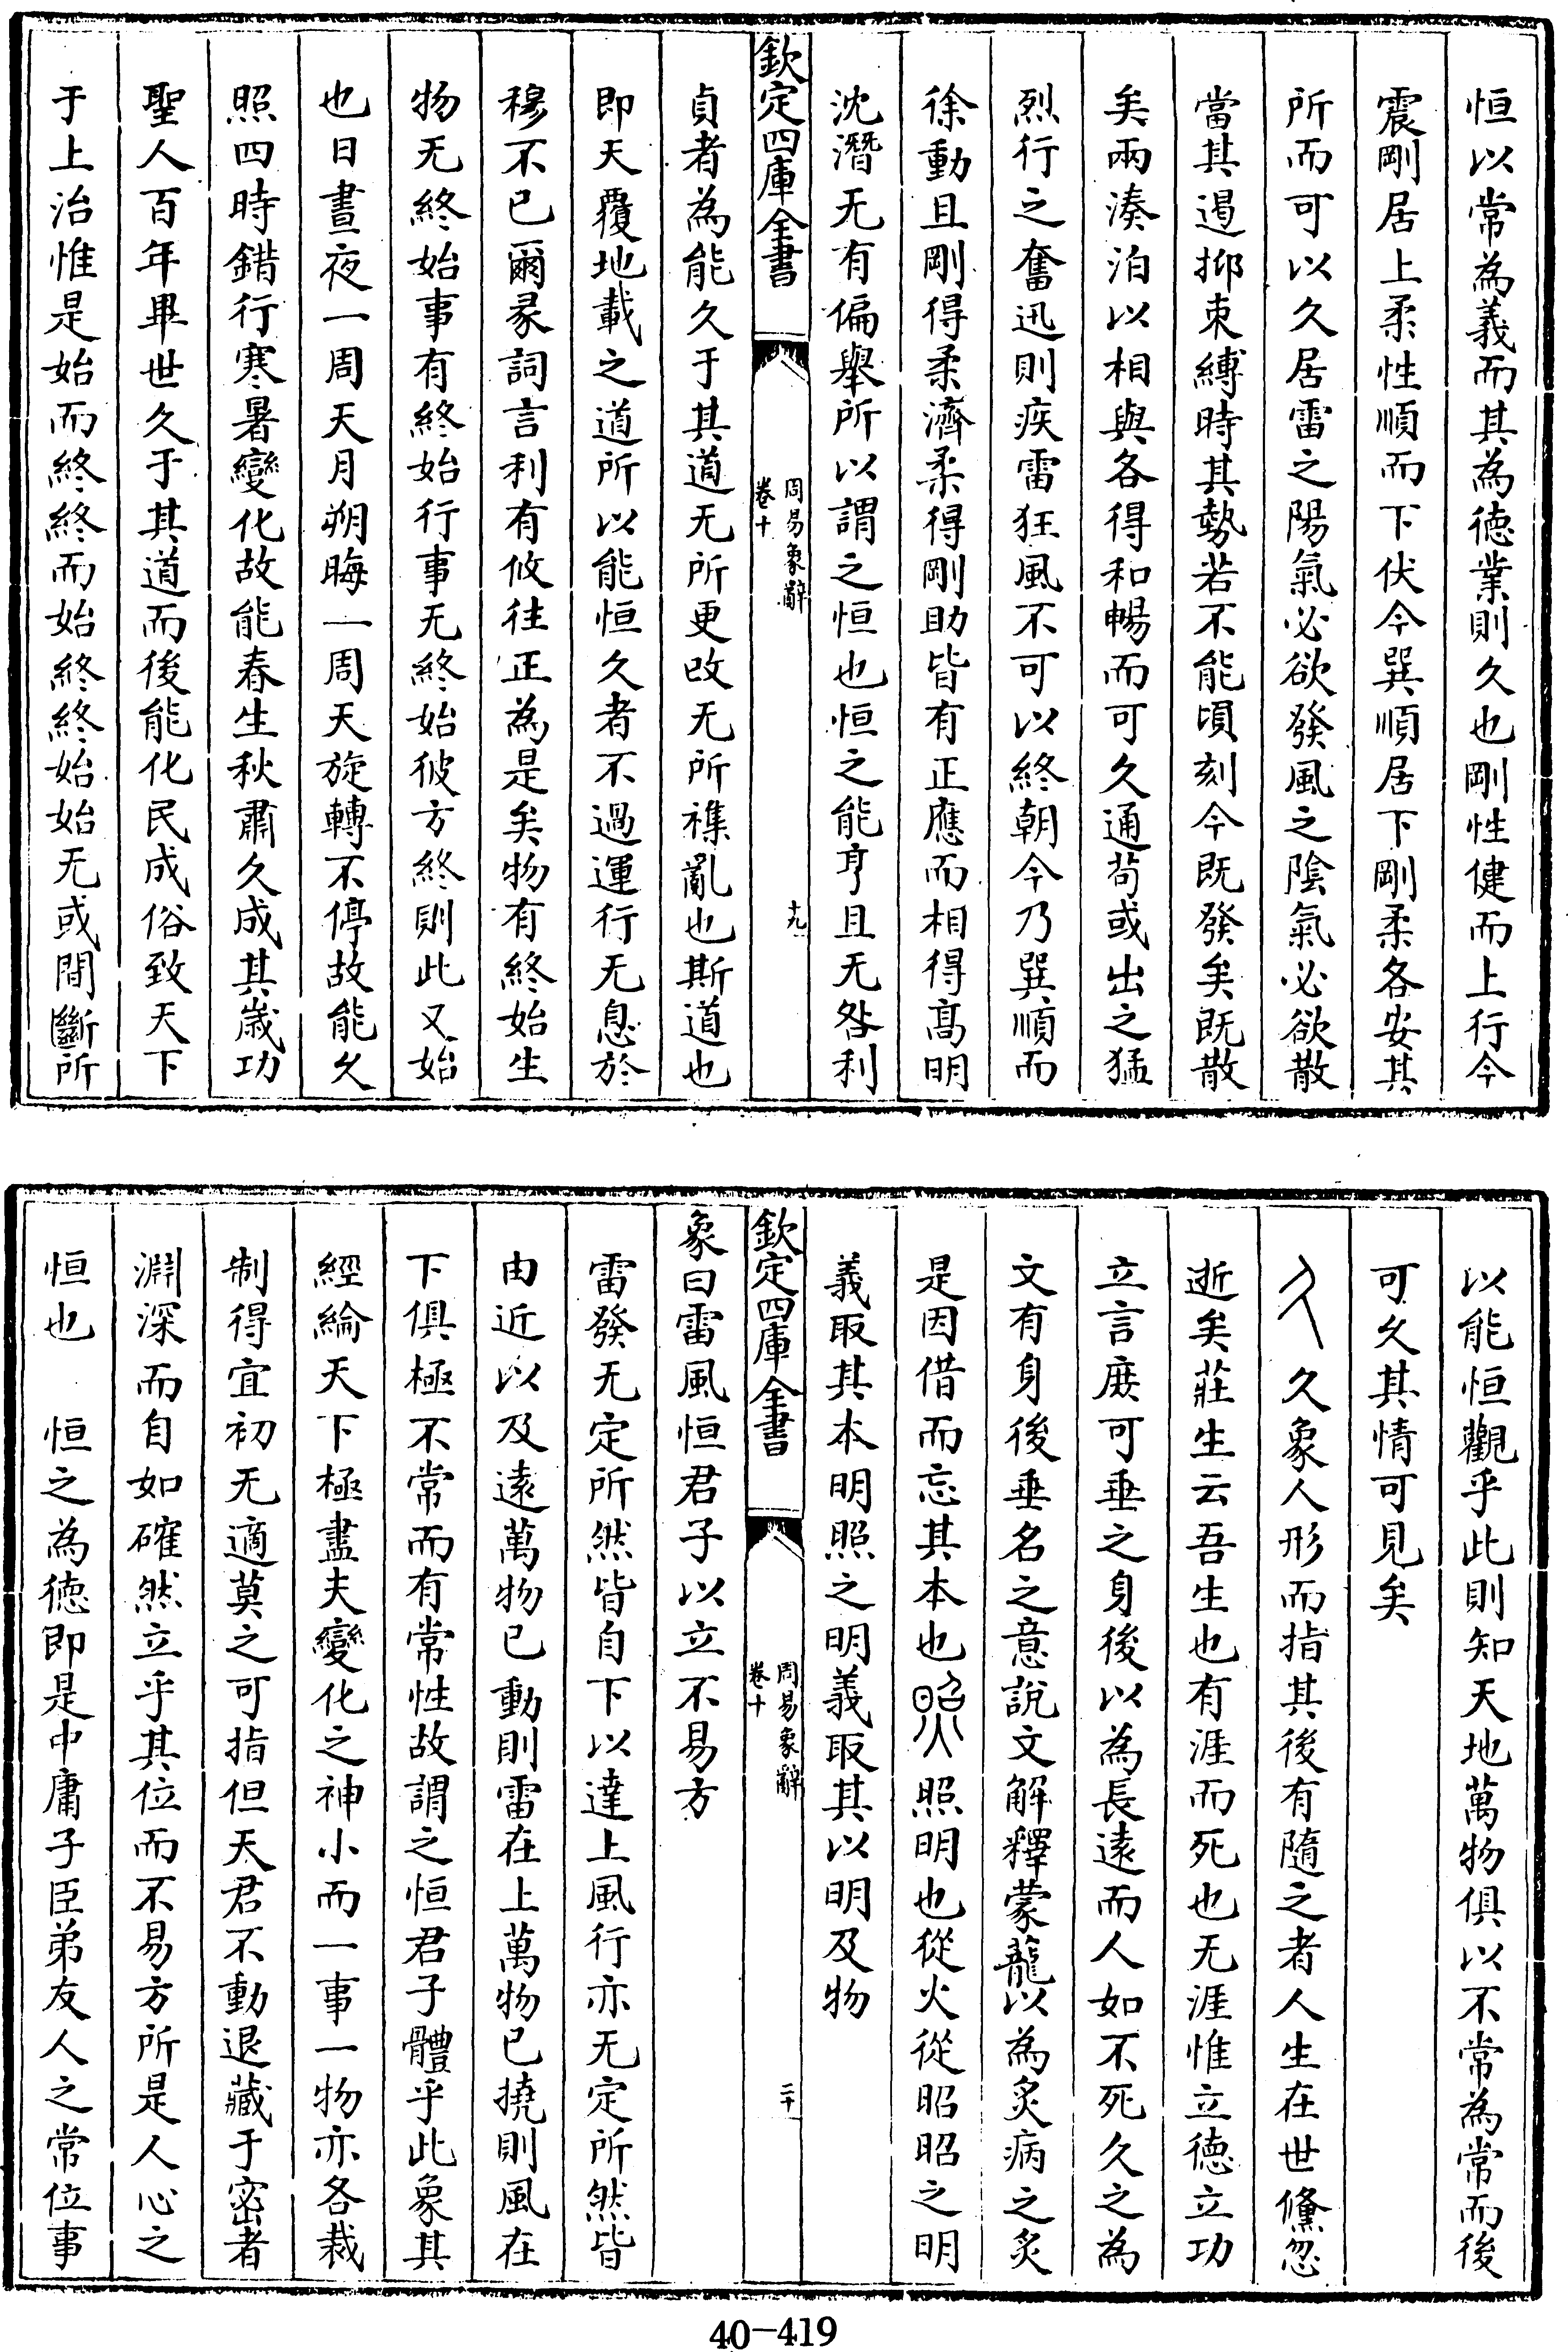 恒以常為義而其為徳業則久也剛性健而上行今
震剛居上柔性順而下伏今巽順居下剛柔各安其
所而可以久居雷之陽氣必欲發風之陰氣必欲散
當其遏抑束縛時其勢若不能頃刻今既發矣既散
矣兩湊泊以相與各得和暢而可久通茍或出之猛
烈行之奮迅則疾雷狂風不可以終朝今乃巽順而
徐動且剛得柔濟柔得剛助皆有正應而相得髙明
沈潛无有偏舉所以謂之恒也恒之能亨且无咎利
欽定四庫全書
周易象辭
卷十
十九
貞者為能久于其道无所更改无所襍亂也斯道也
即天覆地載之道所以能恒久者不過運行无息於
穆不已爾彖詞言利有攸往正為是矣物有終始生
物无終始事有終始行事无終始彼方終則此又始
也日晝夜一周天月朔晦一周天旋轉不停故能久
照四時錯行寒暑變化故能春生秋肅久成其歳功
聖人百年畢世久于其道而後能化民成俗致天下
于上治惟是始而終終而始終終始始无或間斷所
以能恒觀乎此則知天地萬物俱以不常為常而後
可久其情可見矣
久象人形而指其後有隨之者人生在世儵忽
逝矣莊生云吾生也有涯而死也无涯惟立徳立功
立言庶可垂之身後以為長逺而人如不死久之為
文有身後垂名之意說文解釋蒙蘢以為炙病之炙
是因借而忘其本也照明也從火從昭昭之明
義取其本明照之明義取其以明及物
欽定四庫全書
周易象辭
卷十
二十
象曰雷風恒君子以立不易方
雷發无定所然皆自下以達上風行亦无定所然皆
由近以及逺萬物已動則雷在上萬物已撓則風在
下俱極不常而有常性故謂之恒君子體乎此象其
經綸天下極盡夫變化之神小而一事一物亦各裁
制得宜初无適莫之可指但天君不動退藏于密者
淵深而自如確然立乎其位而不易方所是人心之
恒也　恒之為徳即是中庸子臣弟友人之常位事
40-419